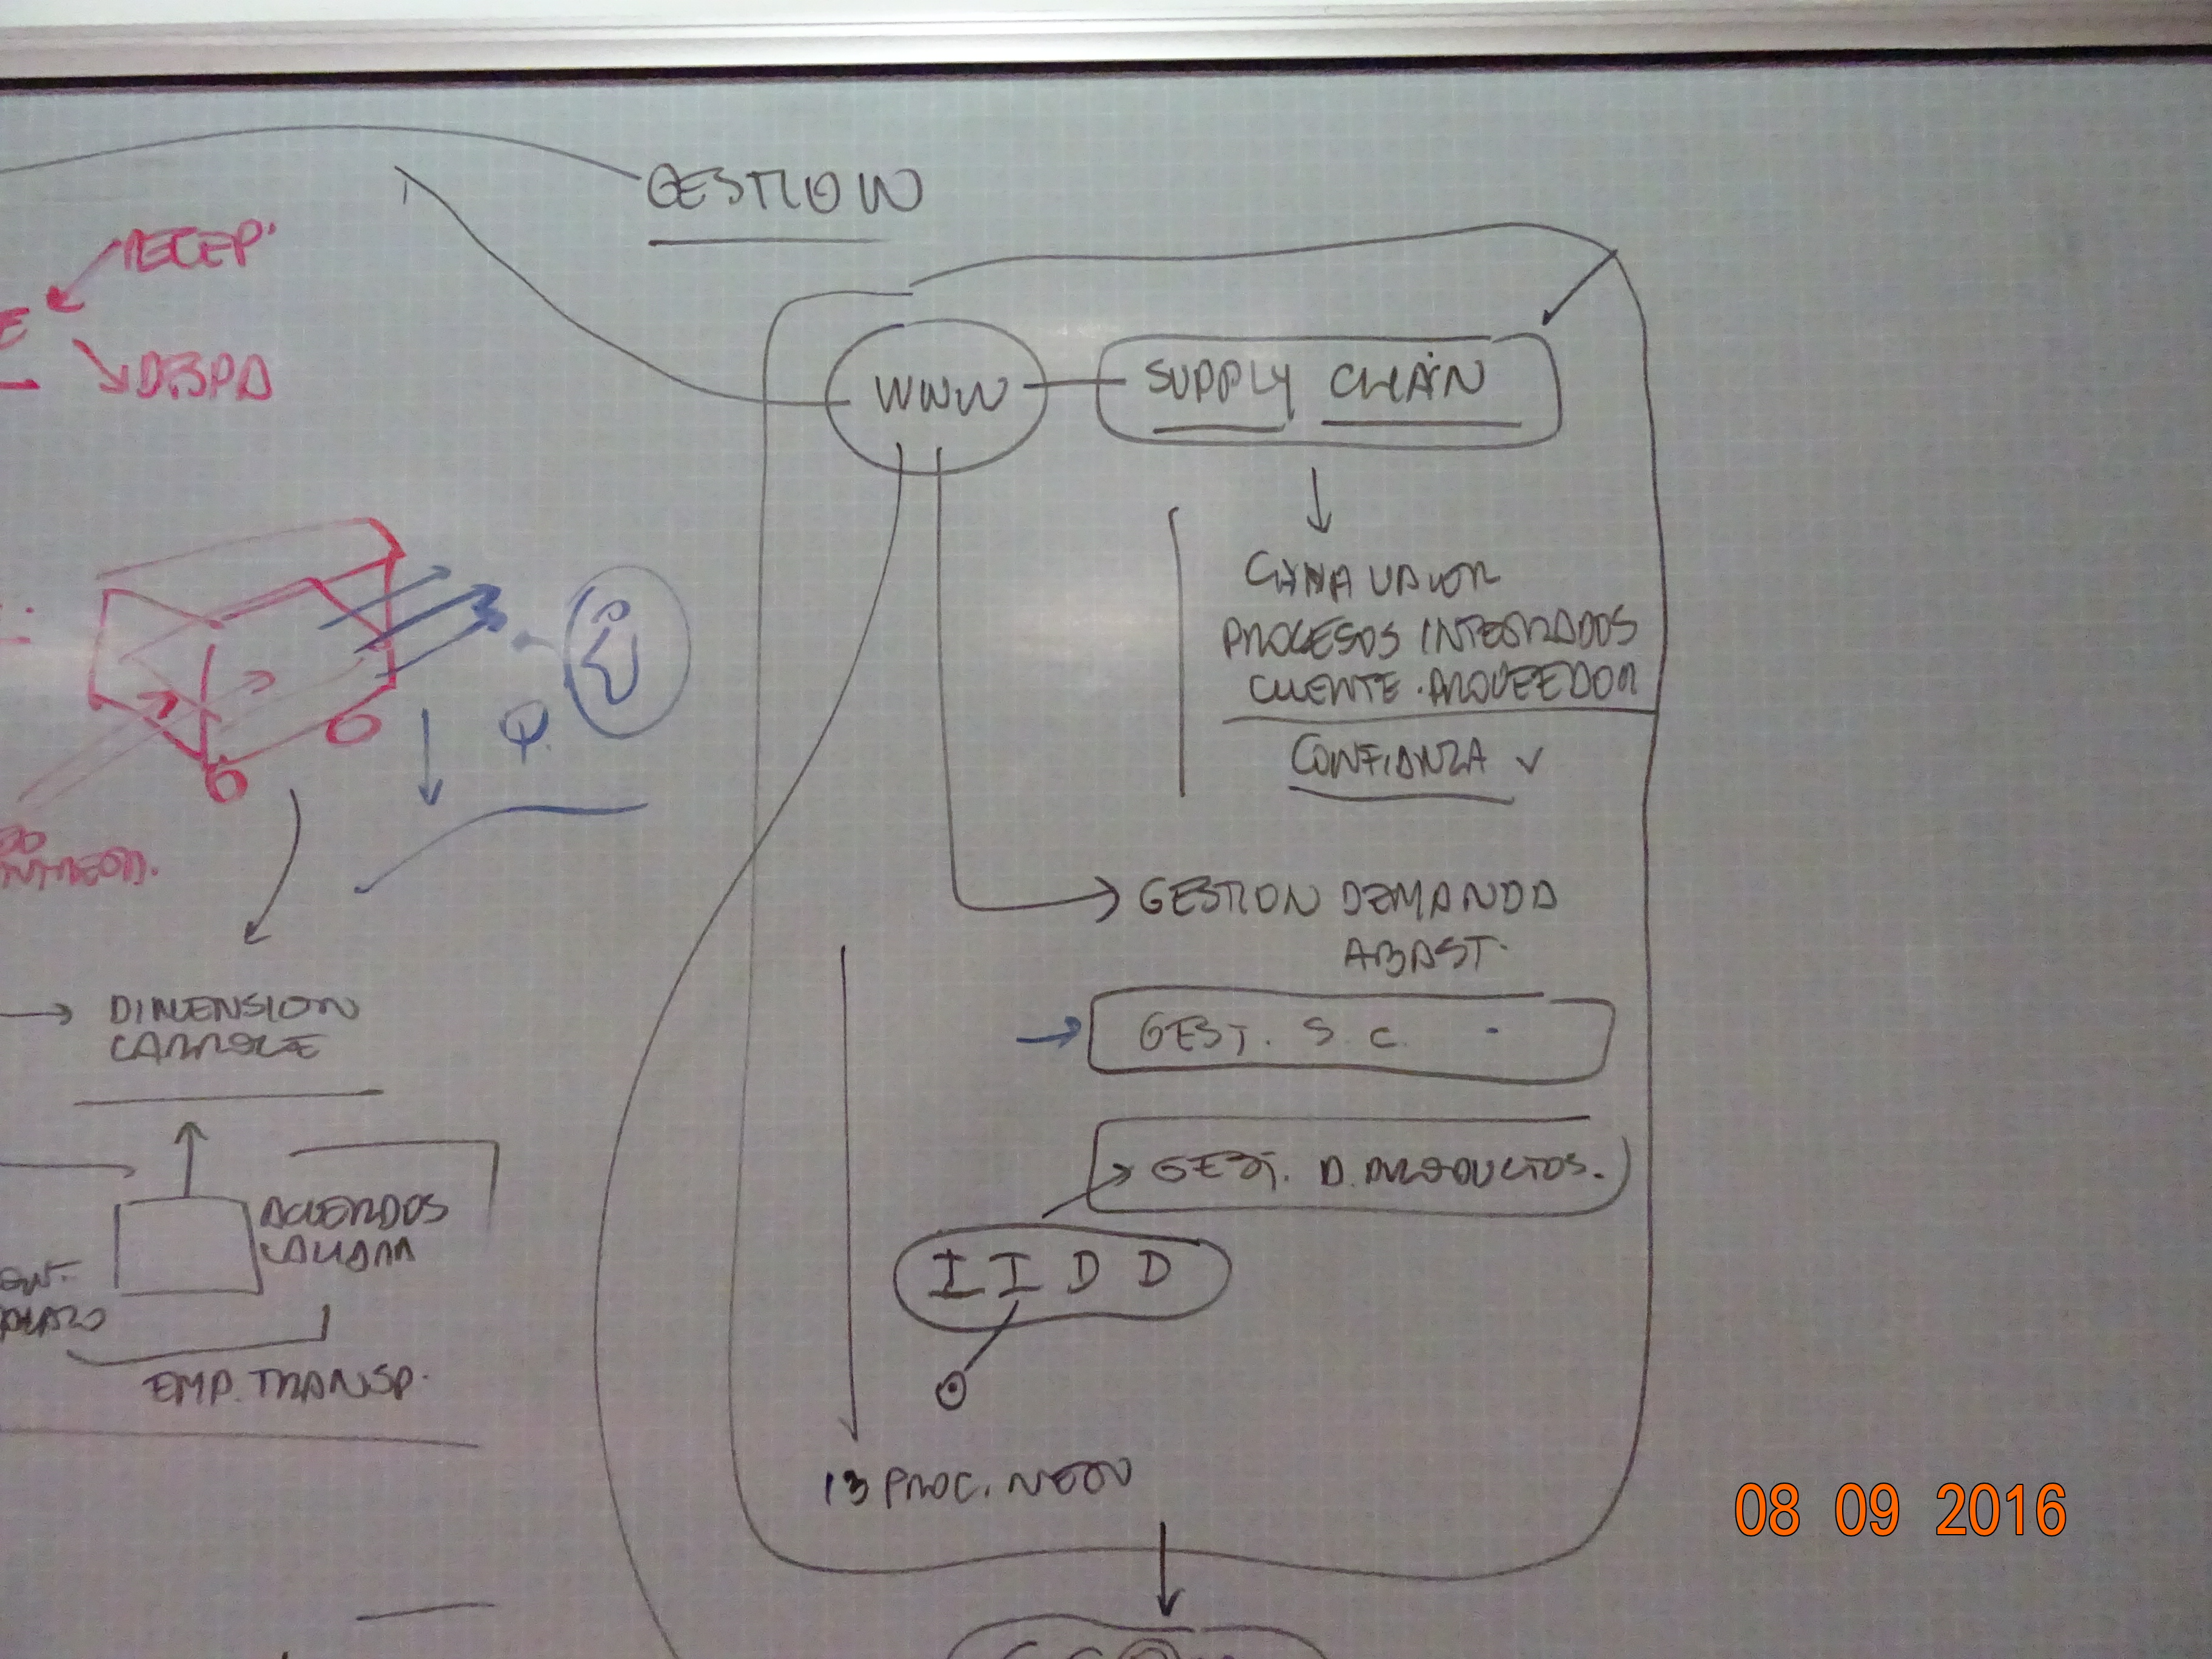 GESTION
RECEP.
DESPA
WWW
SUPPLY CHAIN
CADENA VALOR
PROCESOS INTEGRADOS
CLIENTE. PROVEEDOR
CONFIANZA ✓
Q.
GESTION DEMANDA
ABAST.
DIMENSION
GEST. S. C.
GEST. D. PRODUCTOS.
ACUERDOS
I I D D
EMP. TRANSP.
13 PROC. NEGO
08 09 2016